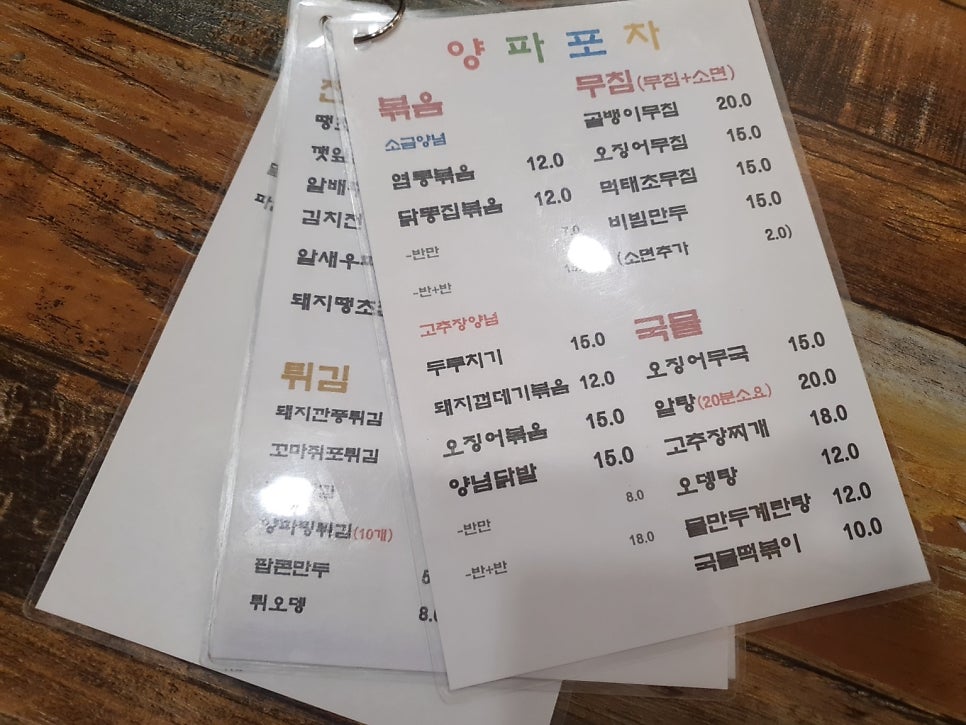 양파포차
볶음
소금양념
염통볶음 12.0
닭똥집볶음 12.0
-반만 7.0
-반+반
고추장양념
두루치기 15.0
돼지껍데기볶음 12.0
오징어볶음 15.0
양념닭발 15.0
-반만 8.0
-반+반 18.0
무침(무침+소면)
골뱅이무침 20.0
오징어무침 15.0
먹태초무침 15.0
비빔만두 15.0
(소면추가 2.0)
국물
오징어무국 15.0
알탕(20분소요) 20.0
고추장찌개 18.0
오뎅탕 12.0
물만두계란탕 12.0
국물떡볶이 10.0
알배
김치전
알새우
돼지땡초
튀김
돼지깐풍튀김
꼬마쥐포튀김
양파링튀김(10개)
팝콘만두
튀오뎅 8.0